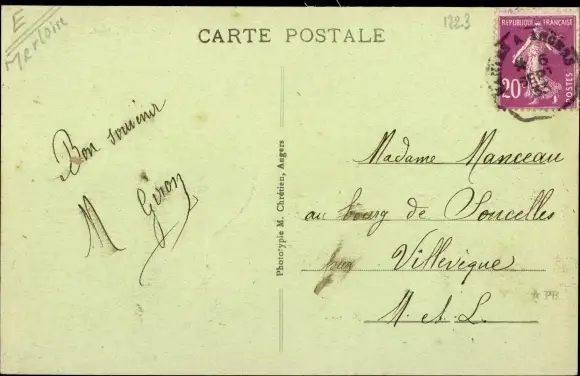 E
CARTE POSTALE
1223
RÉPUBLIQUE FRANÇAISE
20
POSTES
ANGERS
Bon souvenir
M Giron
Phototypie M. Chrétien, Angers
Madame Manceau
au bourg de Soucelles
Villevèque
M. et. L.
PB